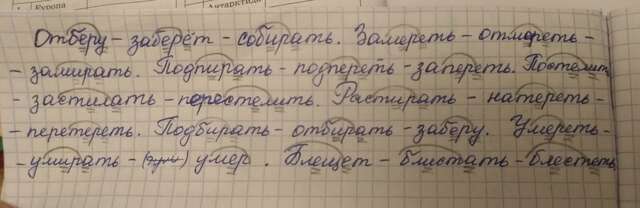 Европа
Антарктида
Отберу – заберёт – собирать. Замереть – отмереть –
– замирать. Подпирать – подпереть – запереть. Постелить
– застилать – перестелить. Растирать – натереть –
– перетереть. Подбирать – отбирать – заберу. Умереть –
– умирать – умер. Блещет – блистать – блестеть.